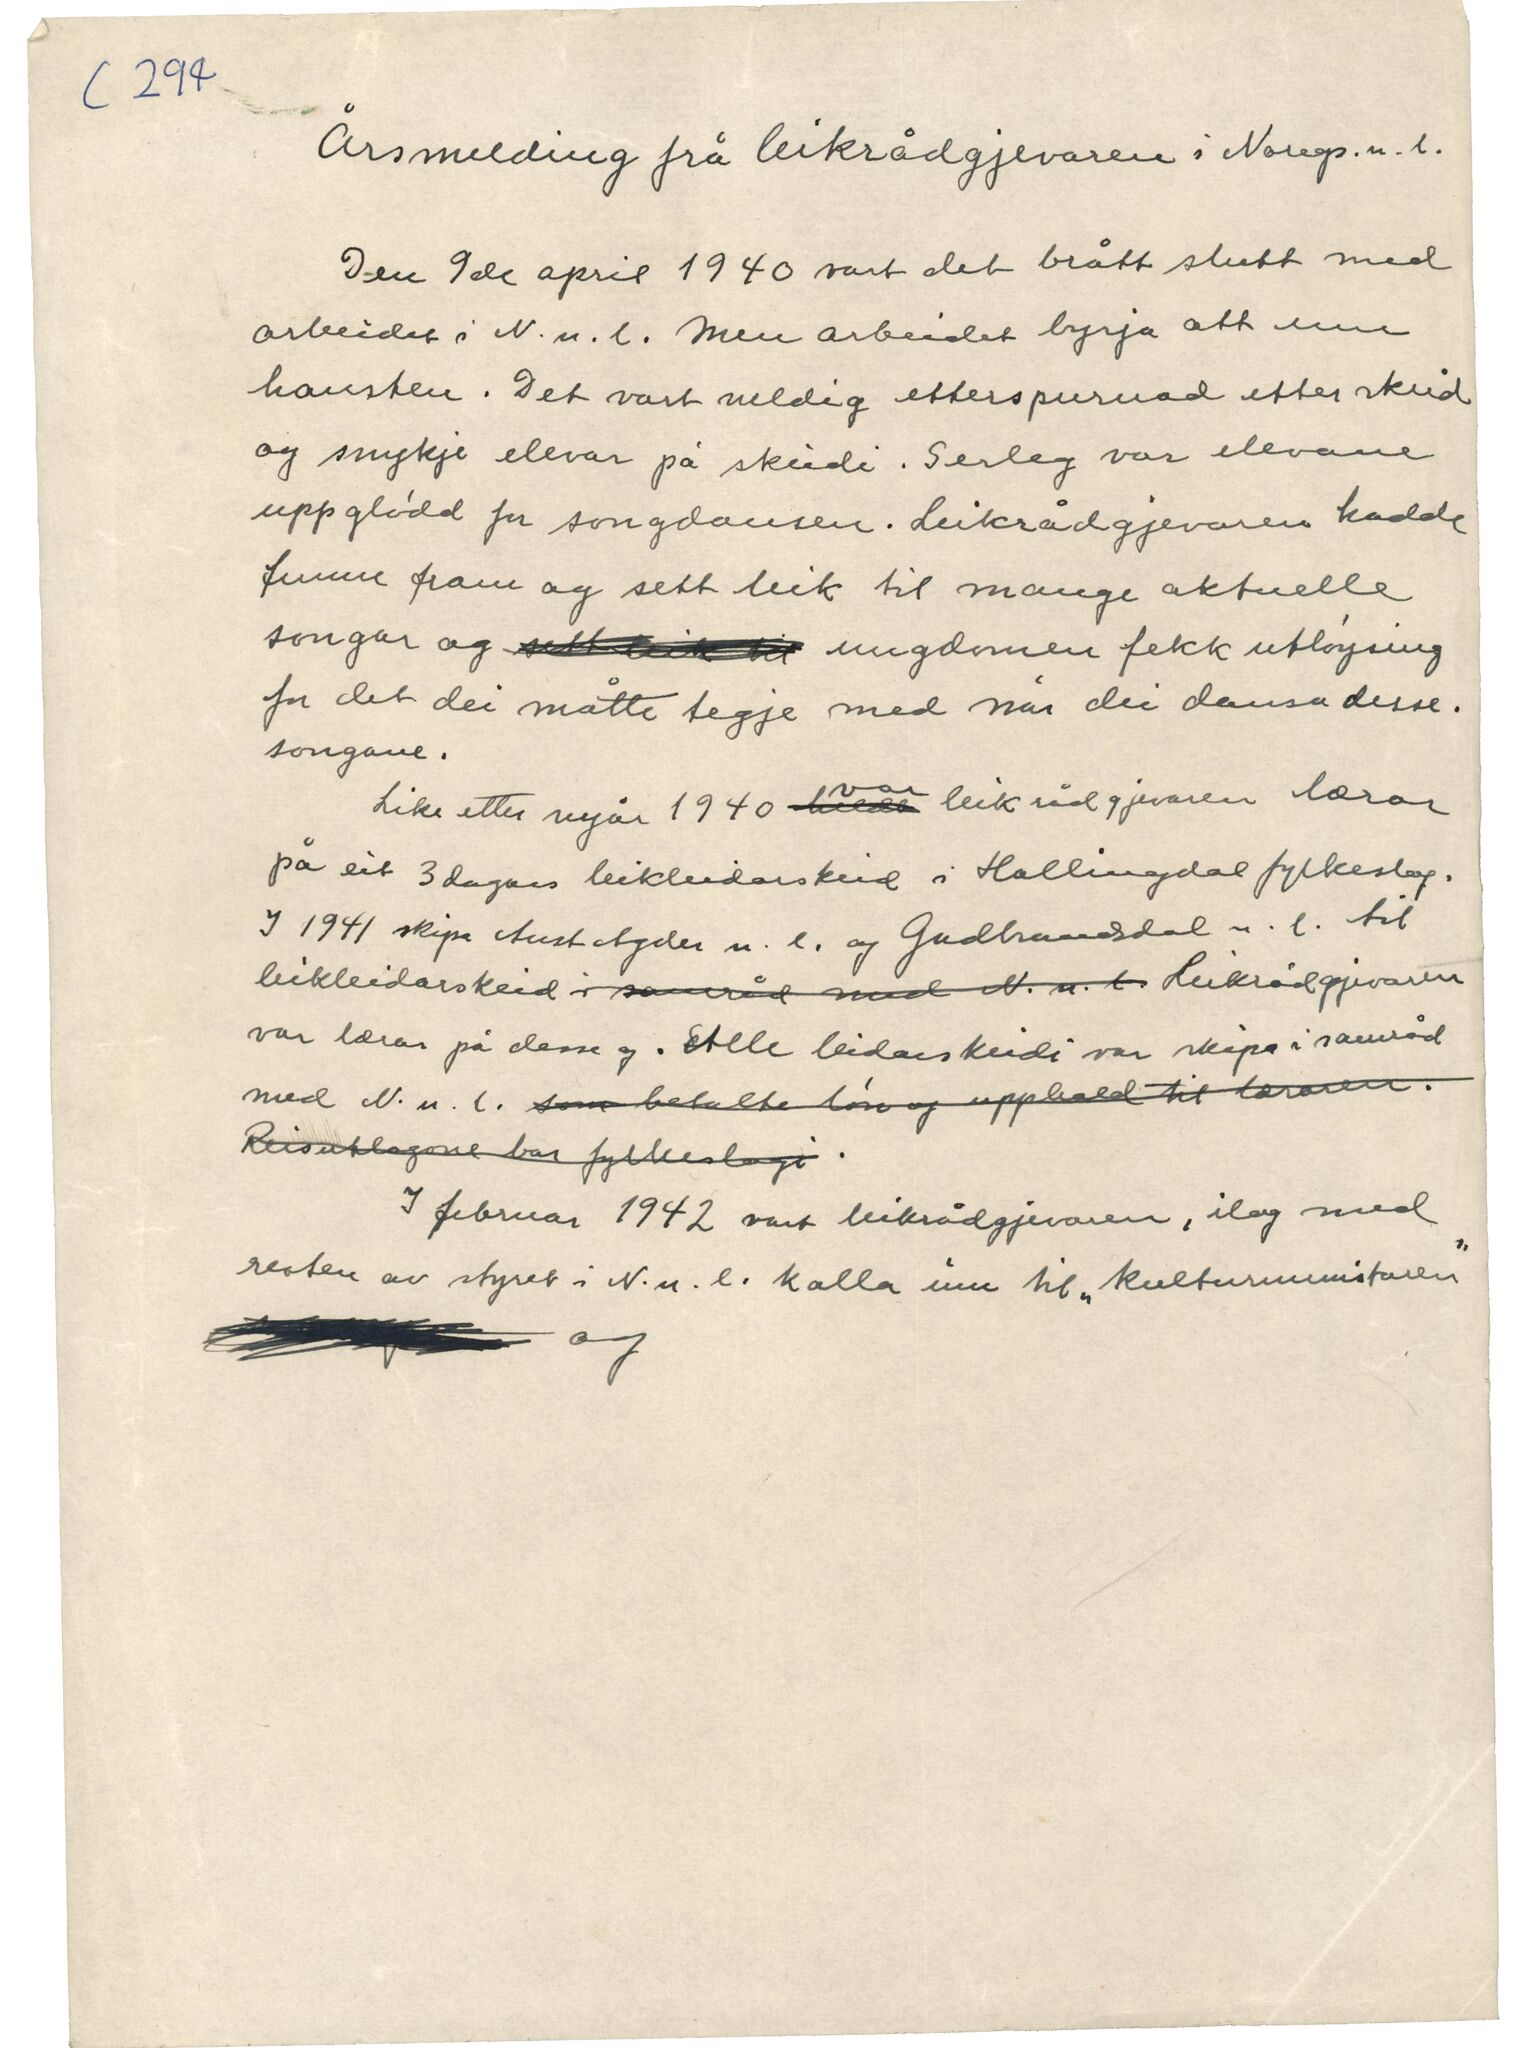 C 294
Årsmelding frå leikrådgjevaren i Noregs. u. l.
Den 9de april 1940 vart det brått slutt med
arbeidet i N. u. l. Men arbeidet byrja att um
hausten. Det vart veldig etterspurnad etter skeid
og mykje elevar på skeidi. Serleg var elevane
uppglødd for songdansen. Leikrådgjevaren hadde
funne fram og sett leik til mange aktuelle
songar og sett leik til ungdomen fekk utløysing
for det dei måtte tegje med når dei dansa desse.
songane.
Like etter nyår 1940 var leikrådgjevaren lærar
på eit 3 dagars leikleidarskeid i Hallingdal fylkeslag.
I 1941 skipa Aust Agder u. l. og Gudbrandsdal u. l. til
leikleidarskeid i samråd med N. u. l. Leikrådgjevaren
var lærar på desse og. Alle leidarskeidi var skipa i samråd
med N. u. l. som betalte løn og upphald til læraren.
Reisutlagone bar fylkeslagi.
I februar 1942 vart leikrådgjevaren, ilag med
resten av styret i N. u. l. kalla inn til „kulturministaren"
og